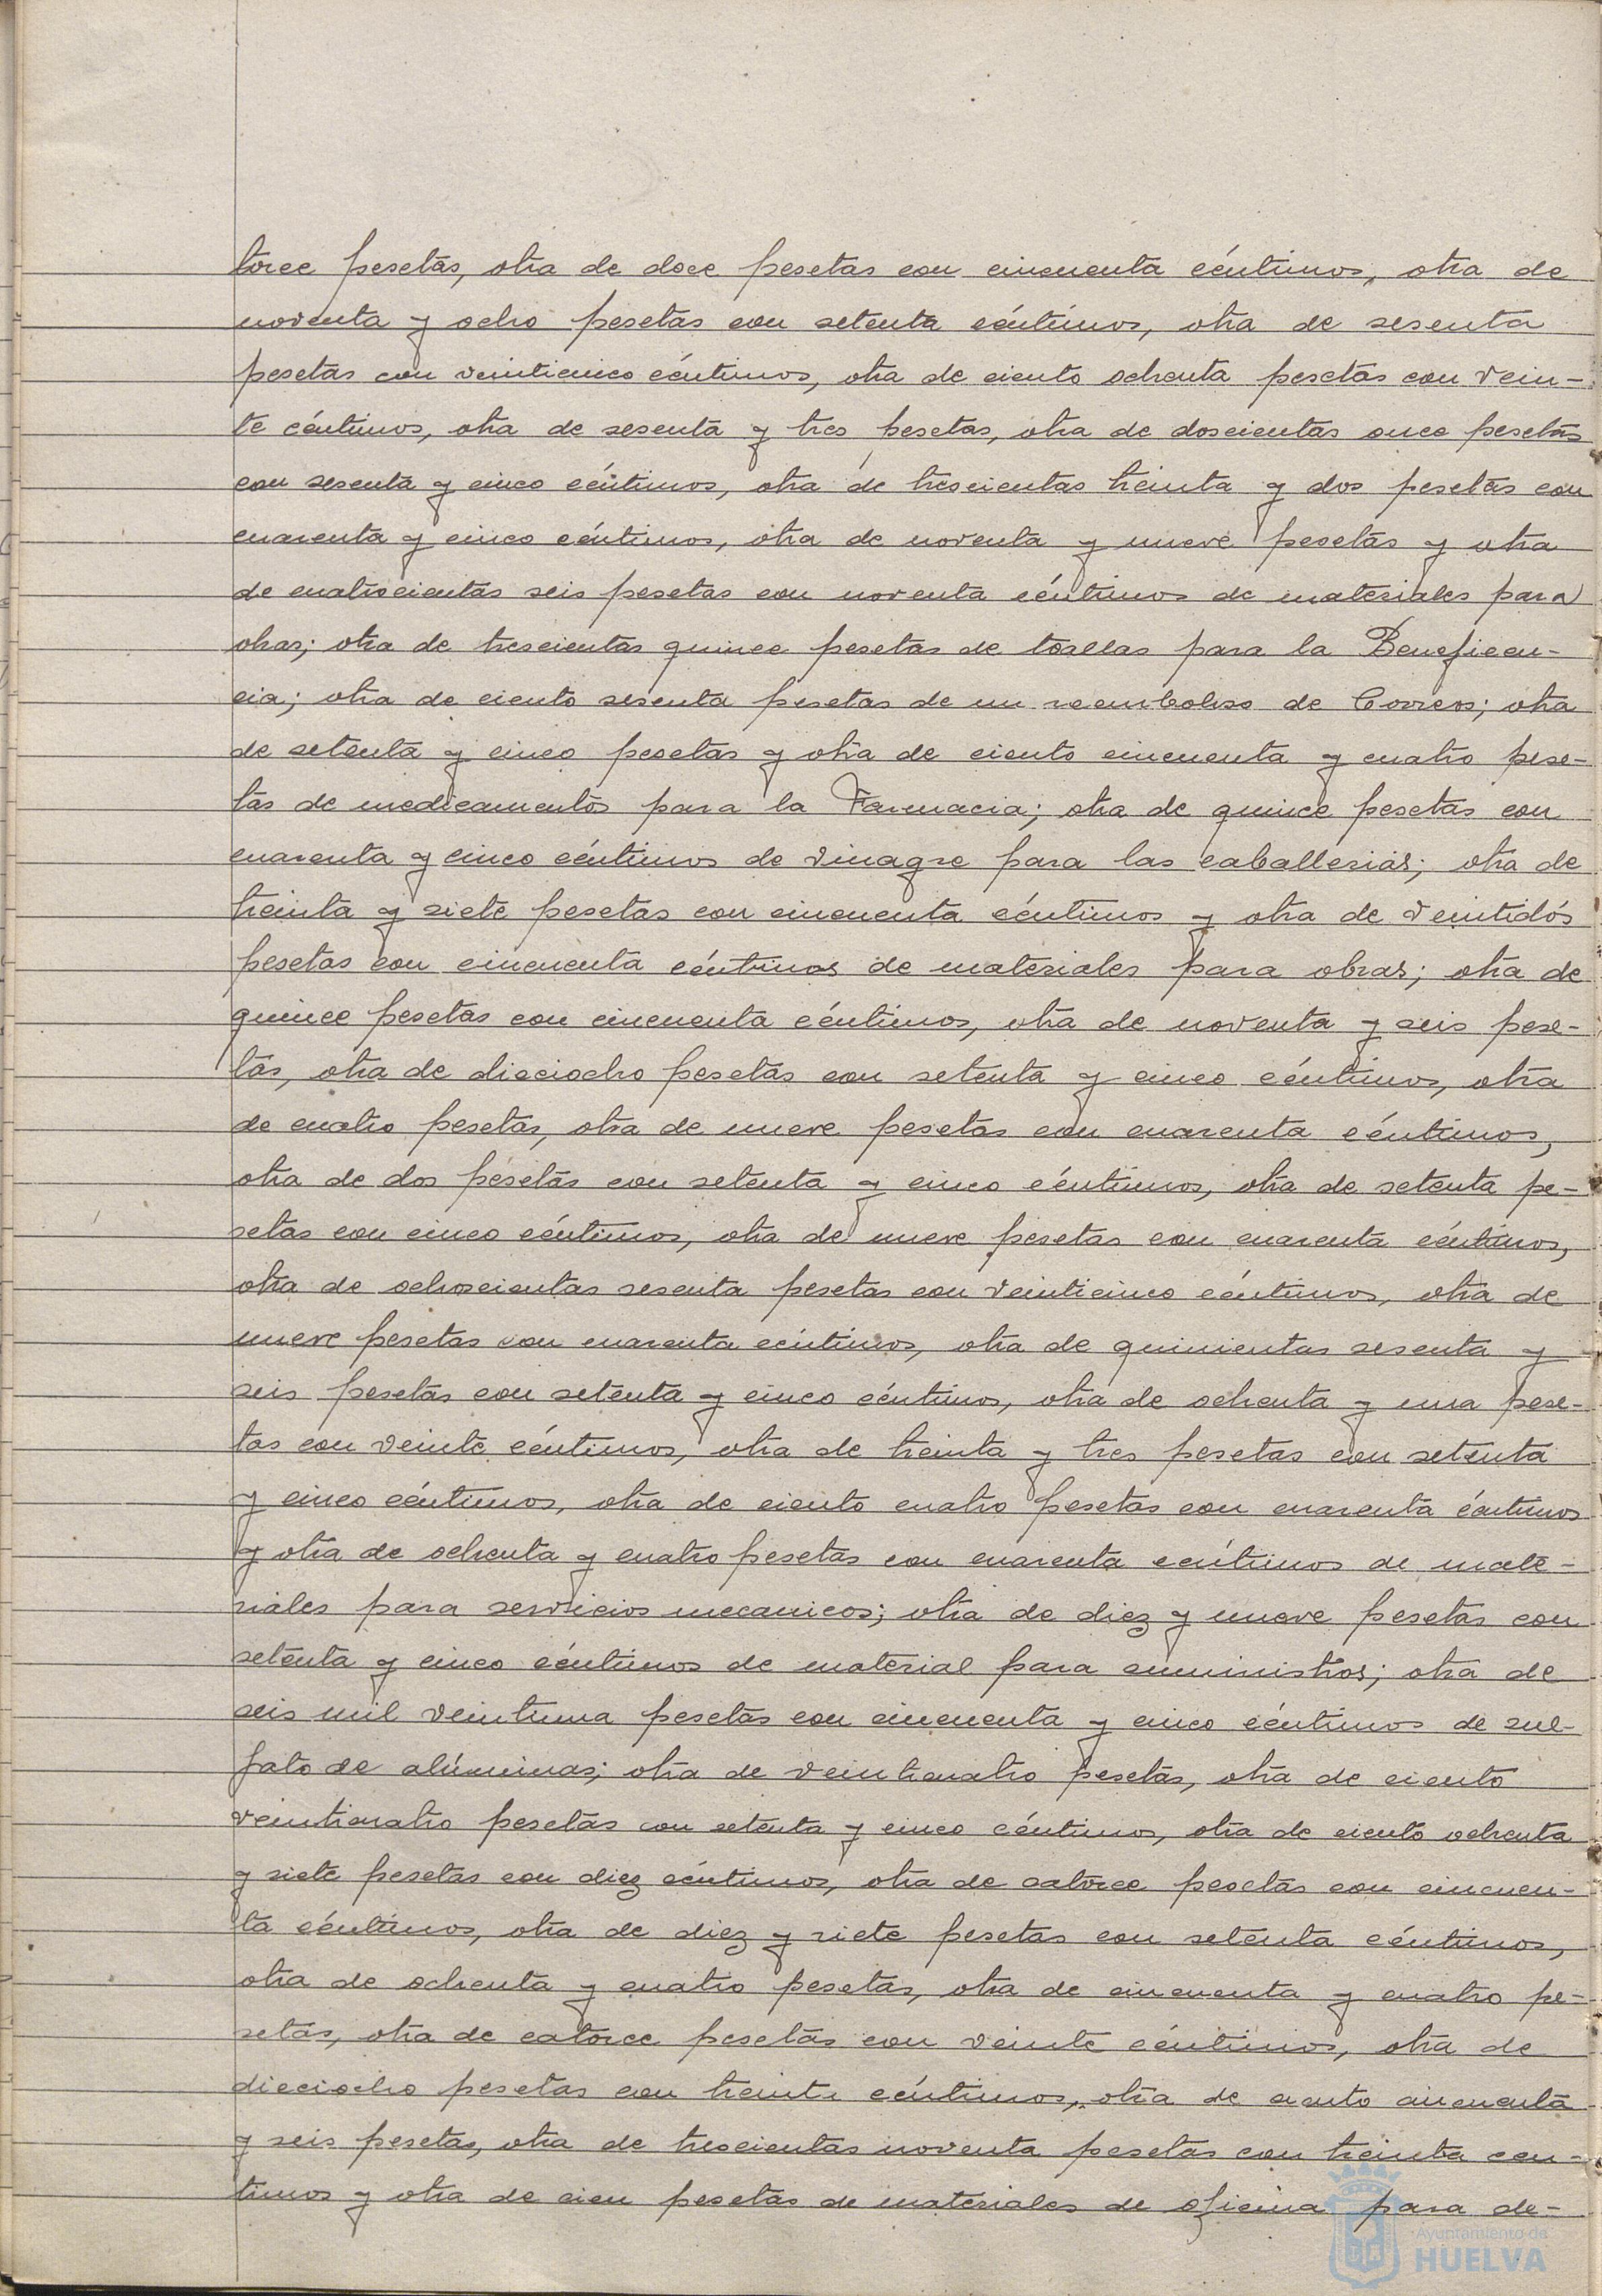 torce pesetas, otra de doce pesetas con cincuenta céntimos, otra de
noventa y ocho pesetas con setenta céntimos, otra de sesenta
pesetas con veinticinco céntimos, otra de ciento ochenta pesetas con vein-
te céntimos, otra de sesenta y tres pesetas, otra de doscientas once pesetas
con sesenta y cinco céntimos, otra de trescientas treinta y dos pesetas con
cuarenta y cinco céntimos, otra de noventa y nueve pesetas y otra
de cuatrocientas seis pesetas con noventa céntimos de materiales para
obras; otra de trescientas quince pesetas de toallas para la Beneficen-
cia; otra de ciento sesenta pesetas de un reembolso de Correos; otra
de setenta y cinco pesetas y otra de ciento cincuenta y cuatro pese-
tas de medicamentos para la Farmacia; otra de quince pesetas con
cuarenta y cinco céntimos de vinagre para las caballerias; otra de
treinta y siete pesetas con cincuenta céntimos y otra de veintidós
pesetas con cincuenta céntimos de materiales para obras; otra de
quince pesetas con cincuenta céntimos, otra de noventa y seis pese-
tas, otra de dieciocho pesetas con setenta y cinco céntimos, otra
de cuatro pesetas, otra de nueve pesetas con cuarenta céntimos,
otra de dos pesetas con setenta y cinco céntimos, otra de setenta pe-
setas con cinco céntimos, otra de nueve pesetas con cuarenta céntimos,
otra de ochocientas sesenta pesetas con veinticinco céntimos, otra de
nueve pesetas con cuarenta céntimos, otra de quinientas sesenta y
seis pesetas con setenta y cinco céntimos, otra de ochenta y una pese-
tas con veinte céntimos, otra de treinta y tres pesetas con setenta
y cinco céntimos, otra de ciento cuatro pesetas con cuarenta céntimos
y otra de ochenta y cuatro pesetas con cuarenta céntimos de mate-
riales para servicios mecanicos; otra de diez y nueve pesetas con
setenta y cinco céntimos de material para suministros; otra de
seis mil veintiuna pesetas con cincuenta y cinco céntimos de sul-
fato de alúminas; otra de veinticuatro pesetas, otra de ciento
veinticuatro pesetas con setenta y cinco céntimos, otra de ciento ochenta
y siete pesetas con diez céntimos, otra de catorce pesetas con cincuen-
ta céntimos, otra de diez y siete pesetas con setenta céntimos,
otra de ochenta y cuatro pesetas, otra de cincuenta y cuatro pe-
setas, otra de catorce pesetas con veinte céntimos, otra de
dieciocho pesetas con treinta céntimos, otra de ciento cincuenta
y seis pesetas, otra de trescientas noventa pesetas con treinta cen-
timos y otra de cien pesetas de materiales de oficina para de-
Ayuntamiento de
HUELVA